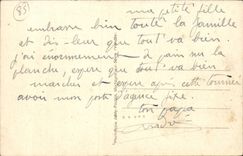 (83)
ma petite fille
embrasse bien toute la famille
et dis-leur que tout va bien.
j'ai énormément à faire sur la
planche, espere que tout va bien
marcher et espere après cette tournée
avoir mon poste d'agence fixe.
ton papa